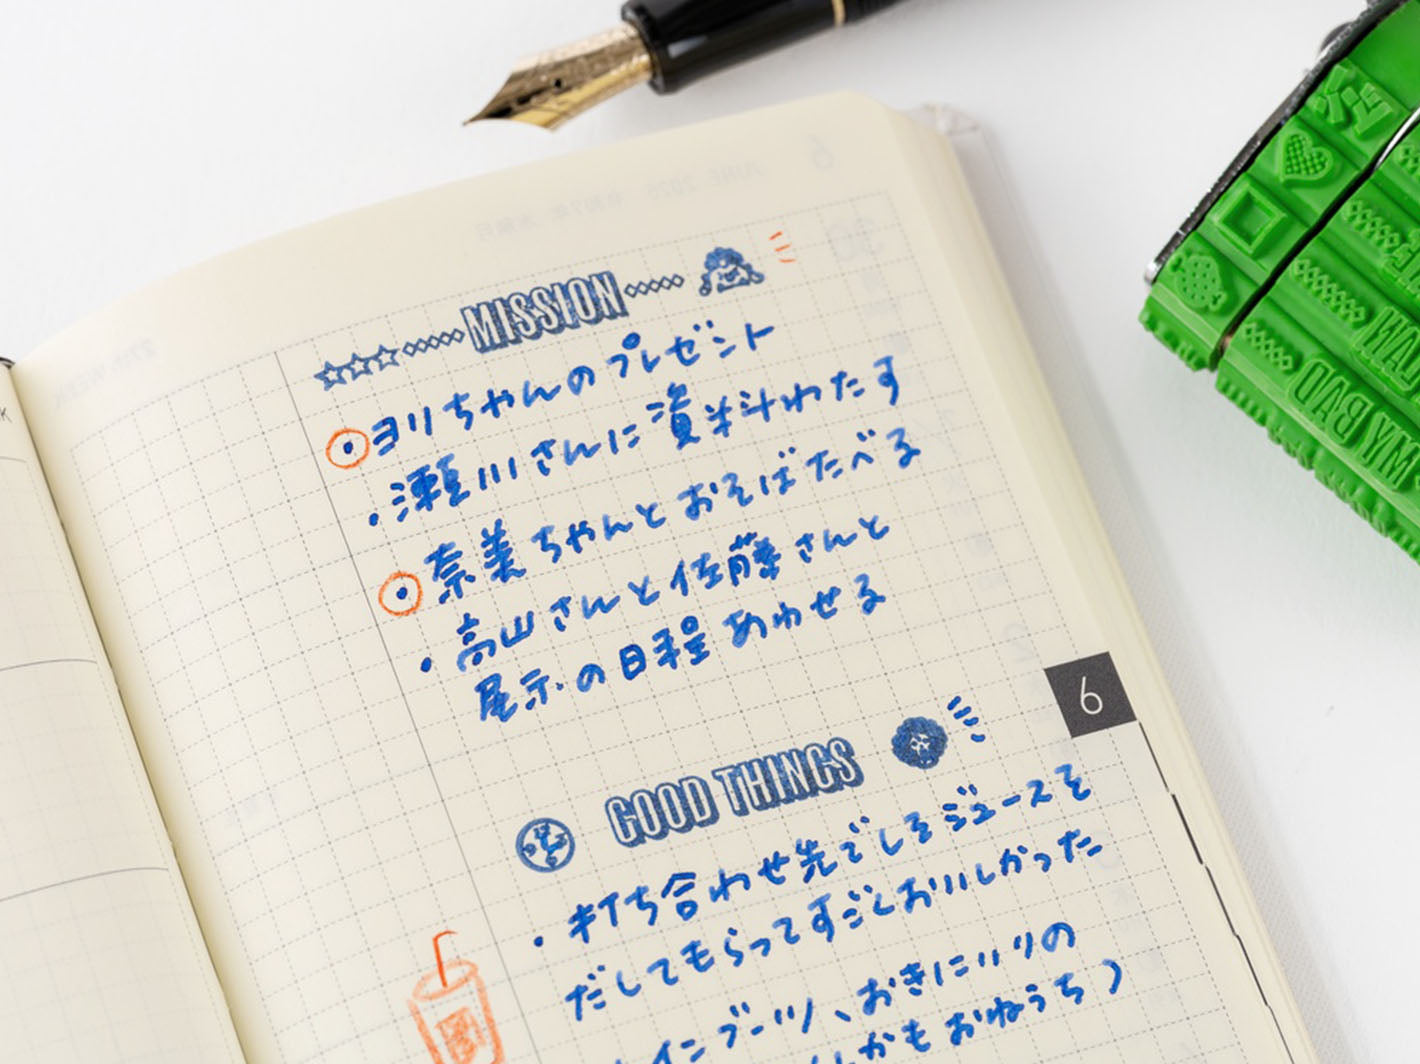 MISSION
・ヨリちゃんのプレゼント
・瀬川さんに資料わたす
・奈美ちゃんとおそばたべる
・高山さんと佐藤さんと
展示の日程あわせる
6
GOOD THINGS
・打ち合わせ先でしそジュースを
だしてもらってすごくおいしかった
インブーツ、おきにいりの
かもおねうち)
MAX BAD